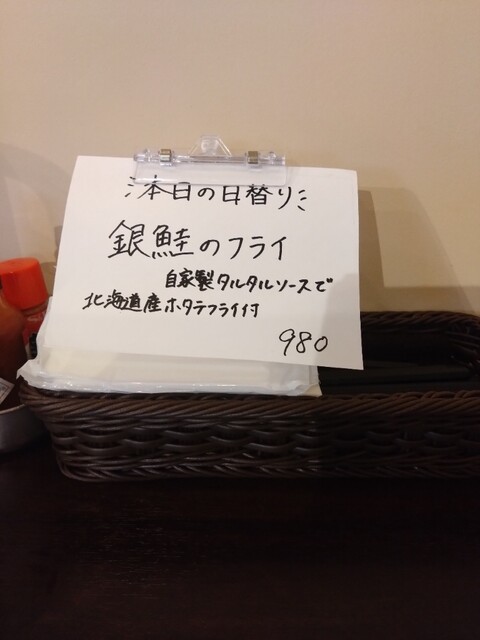 本日の日替り
銀鮭のフライ
自家製タルタルソースで
北海道産ホタテフライ付
980